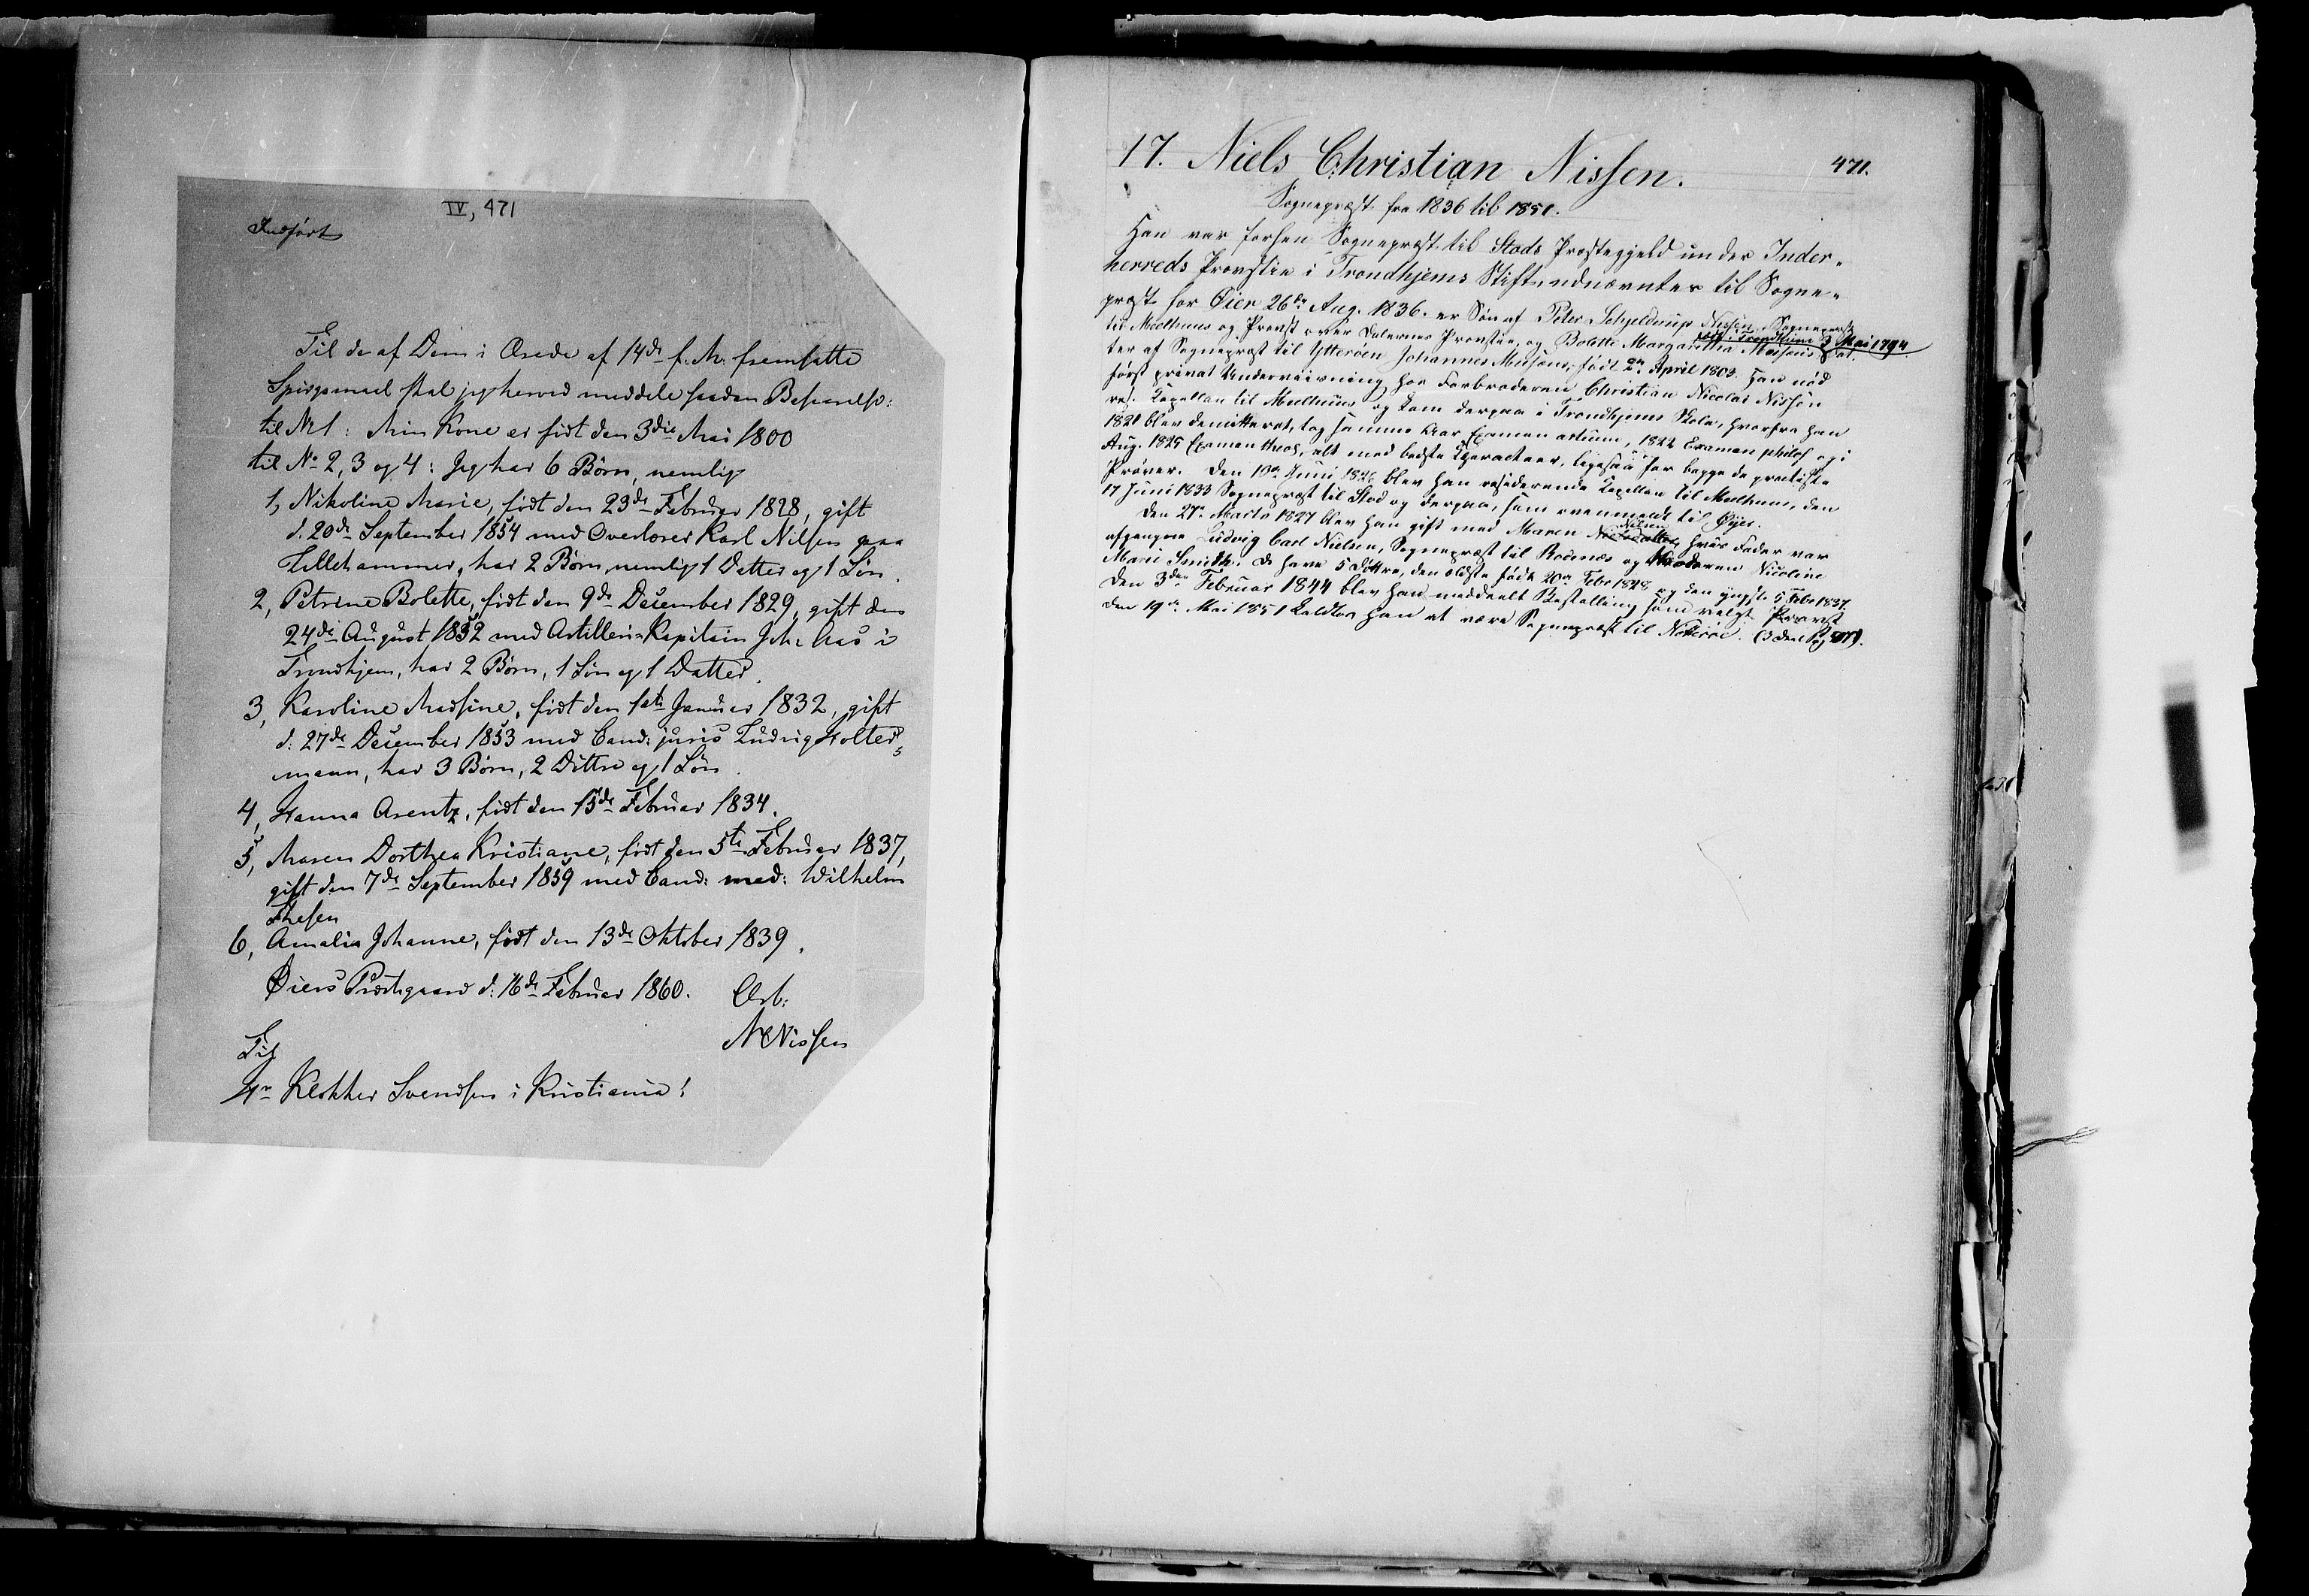 IV, 471
Indført
Til de af Dem i Ærede af 14de f. M. fremsatte
Spørgsmaal skal jeg herved meddele saadan Besvarelse:
til No 1: Min Kone er født den 3die Mai 1800
til No 2, 3 og 4: Jeg har 6 Børn, nemlig
1, Nikoline Marie, født den 23de Februar 1828, gift
d. 20de September 1854 med Overlærer Karl Nilsen paa
Lillehammer, har 2 Børn, nemlig 1 Datter og 1 Søn.
2, Petrine Bolette, født den 9de December 1829, gift den
24de August 1852 med Artilleri-Kapitain Joh. Aas i
Trondhjem, har 2 Børn, 1 Søn og 1 Datter.
3, Karoline Madsine, født den 1ste Januar 1832, gift
d: 27de December 1853 med Cand: juris Ludvig Holter-
mann, har 3 Børn, 2 Døttre og 1 Søn.
4, Hanna Arentz, født den 15de Februar 1834.
5, Maren Dorthea Kristiane, født den 5te Februar 1837,
gift den 7de September 1859 med Cand: med: Wilhelm
Thesen
6, Amalia Johanne, født den 13de Oktober 1839.
Øiers Præstegaard d: 16de Februar 1860. Ærb:
N C Nissen
Til
Hr Klokker Svendsen i Kristiania!
17. Niels Christian Nissen. 471.
Sognepræst fra 1836 til 1851.
Han var forhen Sognepræst til Stods Præstegjeld under Inder-
herreds Provstie i Trondhjems Stift, udnævntes til Sogne-
præst for Øier 26de Aug. 1836. er Søn af Peter Schjelderup Nissen, Sognepræst
til Meelhuus og Provst over Dalernes Provstie, og Bolette Margaretha Musæus Dat.
gift i Trondhiem 3 Mai 1794
ter af Sognepræst til Ytterøen Johannes Musæus, født 2den April 1803. Han nød
først privat Underviisning hos Farbroderen Christian Nicolai Nissen
res. Kapellan til Meelhuus og kom derpaa i Trondhjems Skole, hvorfra han
1821 blev demitteret, tog samme Aar Examen artium, 1822 Examen philos og i
Aug. 1825 Examen theol, alt med bedste Characteer, ligesaa for begge de practiske
Prøver. Den 10de Juni 1826 blev han residerende Capellan til Meelhuus, den
17 Juni 1833 Sognepræst til Stod og derpaa, som ovenmeldt til Øyer.
Den 27de Marts 1827 blev han gift med Maren Nilsen, hvis Fader var
afgangne Ludvig Carl Nielsen, Sognepræst til Roenæs og Moderen Nicoline
Marie Smith. De have 5 Døttre, den ældste født 20de Febr 1828 og den yngste 5 Febr 1837.
Den 3die Februar 1844 blev han meddeelt Bestalling som valgt Provst
den 19de Mai 1851 kaldtes han at være Sognepræst til Nøtterøe. (3 Deel Pag 571).